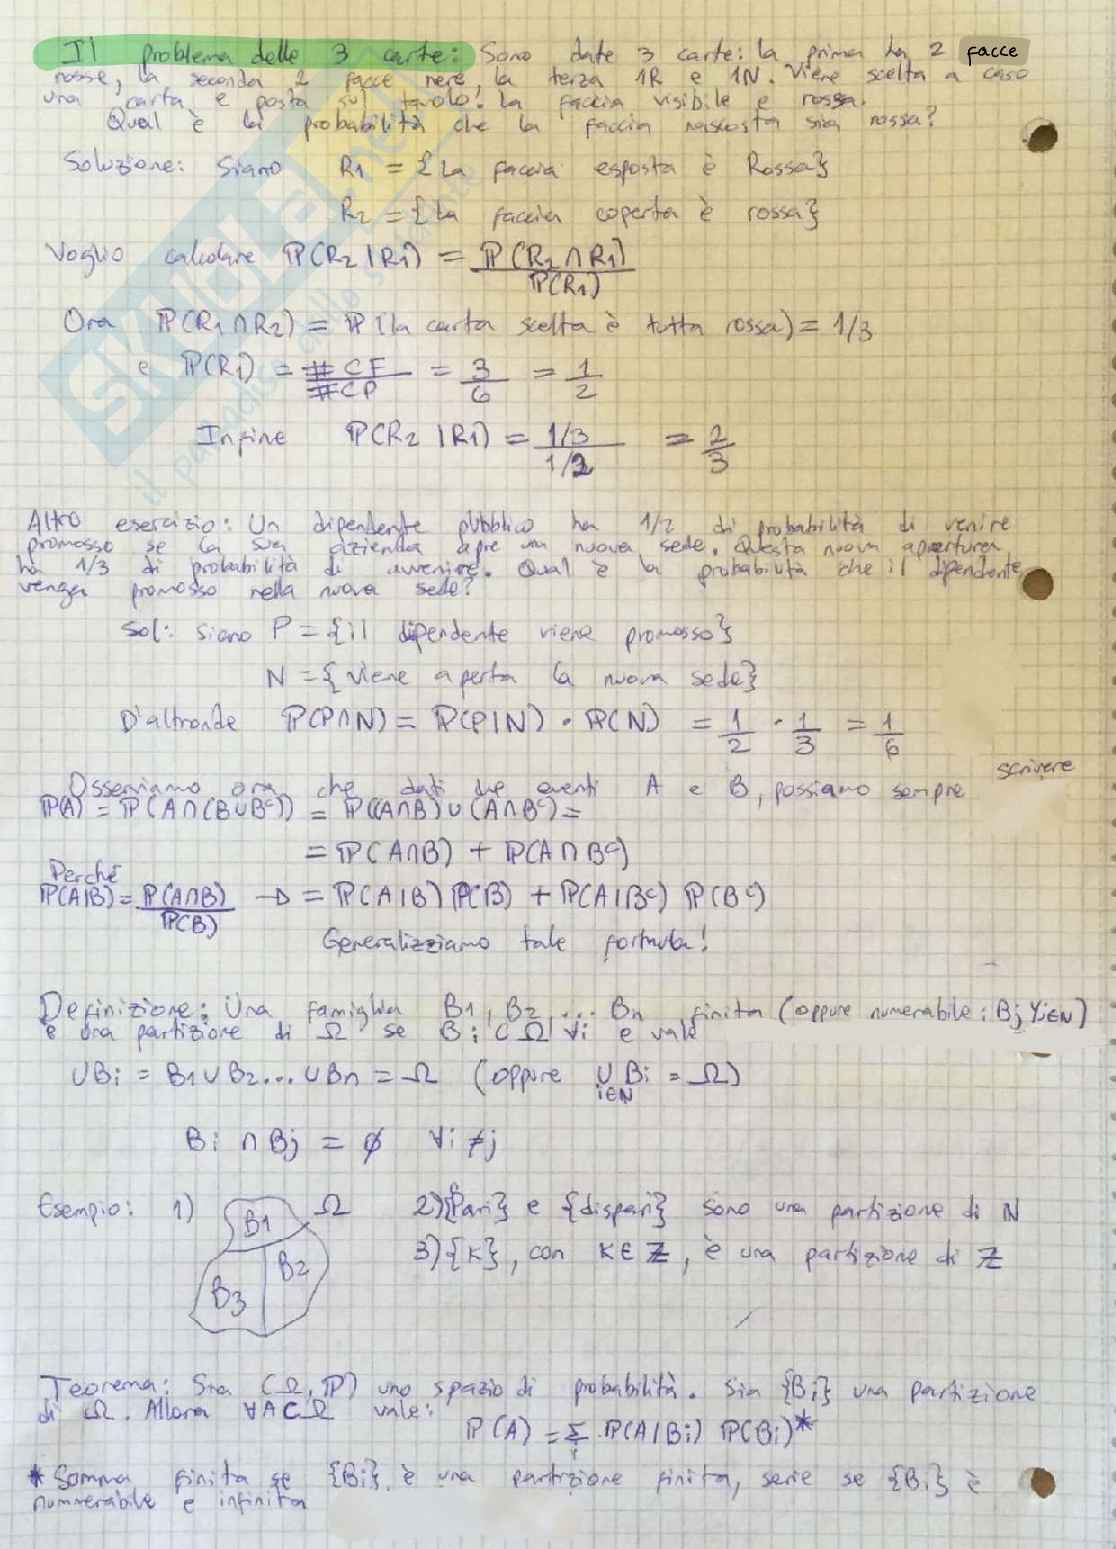 Il problema delle 3 carte: Sono date 3 carte: la prima ha 2 facce
rosse, la seconda 2 facce nere, la terza 1R e 1N. Viene scelta a caso
una carta e posta sul tavolo. La faccia visibile è rossa.
Qual è la probabilità che la faccia nascosta sia rossa?
Soluzione: Siano R1 = {La faccia esposta è Rossa}
R2 = {La faccia coperta è rossa}
Voglio calcolare ℙ(R2|R1) = ℙ(R2∩R1)/ℙ(R1)
Ora ℙ(R1∩R2) = ℙ(la carta scelta è tutta rossa) = 1/3
e ℙ(R1) = #CF/#CP = 3/6 = 1/2
Infine ℙ(R2|R1) = 1/3 / 1/2 = 2/3
Altro esercizio: Un dipendente pubblico ha 1/2 di probabilità di venire
promosso se la sua azienda apre una nuova sede. Questa nuova apertura
ha 1/3 di probabilità di avvenire. Qual è la probabilità che il dipendente
venga promosso nella nuova sede?
Sol: siano P = {il dipendente viene promosso}
N = {viene aperta la nuova sede}
D'altronde ℙ(P∩N) = ℙ(P|N) · ℙ(N) = 1/2 · 1/3 = 1/6
Osserviamo ora che dati due eventi A e B, possiamo sempre scrivere
ℙ(A) = ℙ(A∩(B∪Bᶜ)) = ℙ((A∩B)∪(A∩Bᶜ) =
= ℙ(A∩B) + ℙ(A∩Bᶜ)
Perché
ℙ(A|B) = ℙ(A∩B)/ℙ(B) → = ℙ(A|B) ℙ(B) + ℙ(A|Bᶜ) ℙ(Bᶜ)
Generalizziamo tale formula!
Definizione: Una famiglia B1, B2, ... Bn finita (oppure numerabile: Bj ∀j∈N)
è una partizione di Ω se Bi ⊂ Ω ∀i e vale
∪Bi = B1∪B2...∪Bn = Ω (oppure ∪ Bi = Ω)
i∈N
Bi ∩ Bj = ∅ ∀i ≠ j
Esempio: 1) B1 Ω 2) {Pari} e {dispari} sono una partizione di N
B2 3) {K}, con K∈Z, è una partizione di Z
B3
Teorema: Sia (Ω, ℙ) uno spazio di probabilità. Sia {Bi} una partizione
di Ω. Allora ∀A⊂Ω vale:
ℙ(A) = Σ ℙ(A|Bi) ℙ(Bi)*
i
* Somma finita se {Bi} è una partizione finita, serie se {Bi} è
nummerabile e infinita
SKUOLA.net